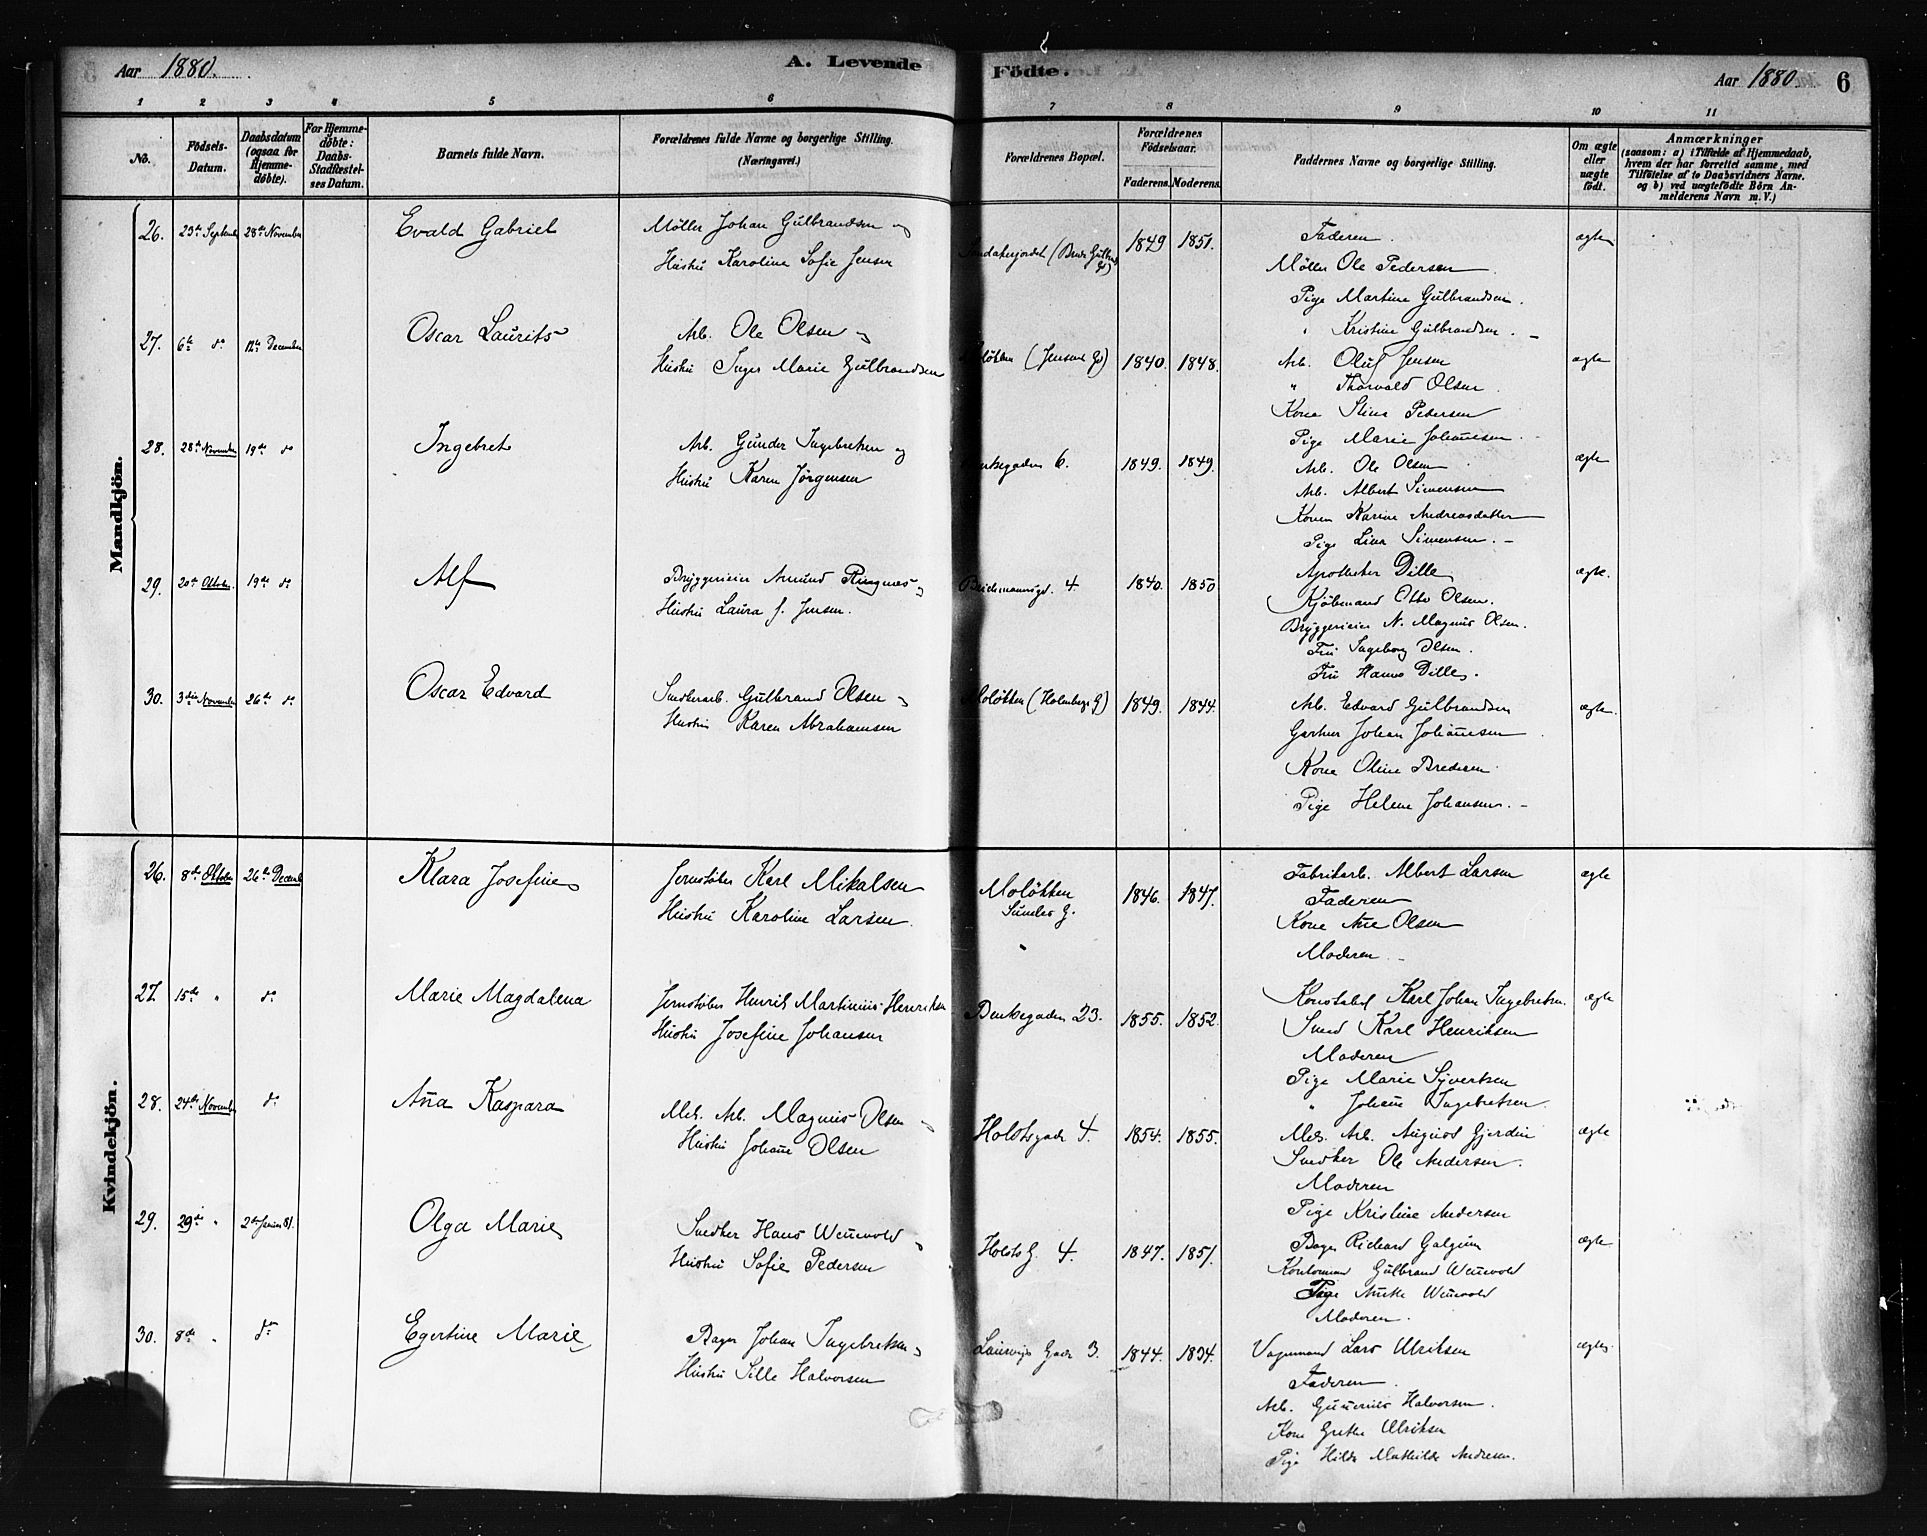 Aar 1880.
A. Levende Födte.
Aar 1880.
6
1 2 3 4 5 6 7 8 9 10 11
No.
Fødsels-Datum.
Daabsdatum (ogsaa for Hjemme-døbte).
For Hjemme-døbte: Daabs-Stadfæstel-ses Datum.
Barnets fulde Navn.
Forældrenes fulde Navne og borgerlige Stilling. (Næringsvei.)
Forældrenes Bopæl.
Forældrenes Fødselsaar.
Faderens. Moderens.
Faddernes Navne og borgerlige Stilling.
Om ægte eller uægte født.
Anmærkninger
(saasom: a) i Tilfælde af Hjemmedaab,
hvem der har forrettet samme, med
Tilføielse af to Daabsvidners Navne.
og b) ved uægtefødte Børn An-
melderens Navn m. V.)
Mandkjön.
26. 23de September 28de November Evald Gabriel
Møller Johan Gulbrandsen og
Hustru Karoline Sofie Jensen
1849 1851. ægte
Faderen.
Møller Ole Pedersen
Pige Martine Gulbrandsen.
" Kristine Gulbrandsen. -
27. 6te do 12te December Oscar Laurits
Arb. Ole Olsen og
Hustru Inger Marie Gulbrandsen
(Jensens Gd) 1840. 1848. ægte
Arb. Oluf Jensen
" Thorvald Olsen
Kone Stina Pedersen
Pige Marie Johannesen.
28. 28de November 19de do Ingebret
Arb. Gunder Ingebretsen og
Hustru Karen Jörgensen
6. 1849. 1849. ægte
Arb. Ole Olsen
Arb. Albert Simensen
Konen Karine Andreasdatter
Pige Lina Simensen. -
29. 20de Oktober 19de do Alf
Bryggerieier Amund Ringnes og
Hustru Laura f. Jensen.
4. 1840. 1850 ægte.
Apotheker Dille
Kjøbmand Otto Olsen.
Bryggerieier N. Magnus Olsen.
Fru Ingeborg Olsen.
Fru Hanna Dille.
30. 3die November 26de do Oscar Edvard
Snedkerarb. Gulbrand Olsen og
Hustru Karen Abrahamsen
Moløkken (Holmbergs G) 1849. 1844. ægte.
Arb. Edvard Gulbrandsen
Gartner Johan Johannesen
Kone Oline Bredesen
Pige Helene Johansen. -
Kvindekjön.
26. 8de Oktober 26de December Klara Josefine
Jernstøber Karl Mikalsen
Hustru Karoline Larsen.
Moløkken
1846. 1847. ægte
Fabrikarb. Albert Larsen
Faderen
Kone Ane Olsen
Moderen -
27. 15de " do Marie Magdalena
Jernstøber Henrik Martinius Henriksen
Hustru Josefine Johansen
Benkegaden 23. 1855. 1852. ægte
Konstabel Karl Johan Ingebretsen.
Smed Karl Henriksen
Moderen
Pige Marie Syvertsen
" Johanne Ingebretsen.
28. 24de November do Anna Kaspara
Mek. Arb. Magnus Olsen og
Hustru Johanne Olsen
Holstsgade 4. 1854. 1855. ægte
Mek. Arb. August Gjerdin
Snedker Ole Andersen.
Moderen
Pige Kristine Andersen
29. 29de " 2den Januar 81. Olga Marie
Snedker Hans Wennevold og
Hustru Sofie Pedersen
Holsts G. 4. 1847. 1851. ægte
Bager Richard Galgum
Kontormand Gulbrand Wennevold
Pige Anette Wennevold
Moderen.
30. 8de " do Egertine Marie
Bager Johan Ingebretsen og
Hustru Sille Halvorsen
Laurvigs Gade 3. 1844. 1834. ægte
Vognmand Lars Ulriksen
Faderen.
Arb. Gunerius Halvorsen.
Kone Grethe Ulriksen
Pige Hilda Mathilde Andresen.